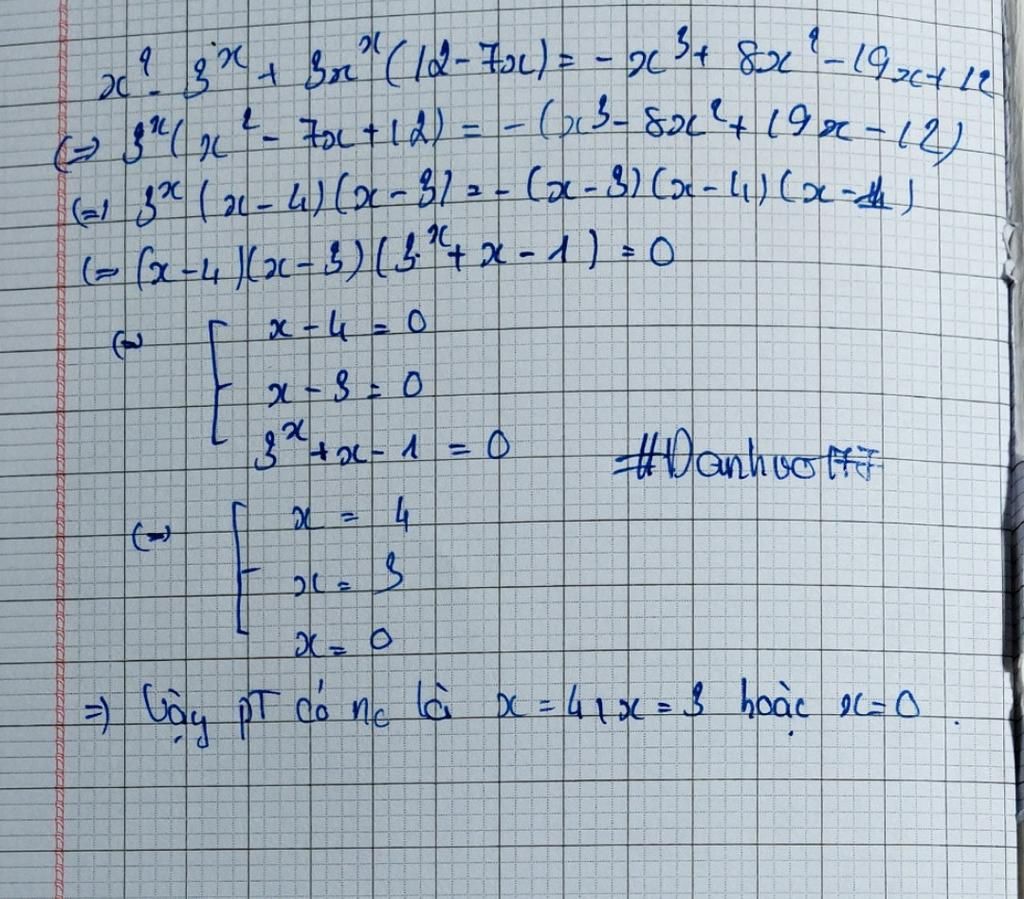 x² - 3ˣ + 3xˣ(12 - 7x) = -x³ + 8x² - 19x + 12
(=) 3ˣ(x² - 7x + 12) = -(x³ - 8x² + 19x - 12)
(=) 3ˣ(x - 4)(x - 3) = -(x - 3)(x - 4)(x - 1)
(= (x - 4)(x - 3)(3ˣ + x - 1) = 0
(=) [ x - 4 = 0
x - 3 = 0
3ˣ + x - 1 = 0
(=) [ x = 4
x = 3
x = 0
=) Vậy PT có nc là x = 4, x = 3 hoặc x = 0.